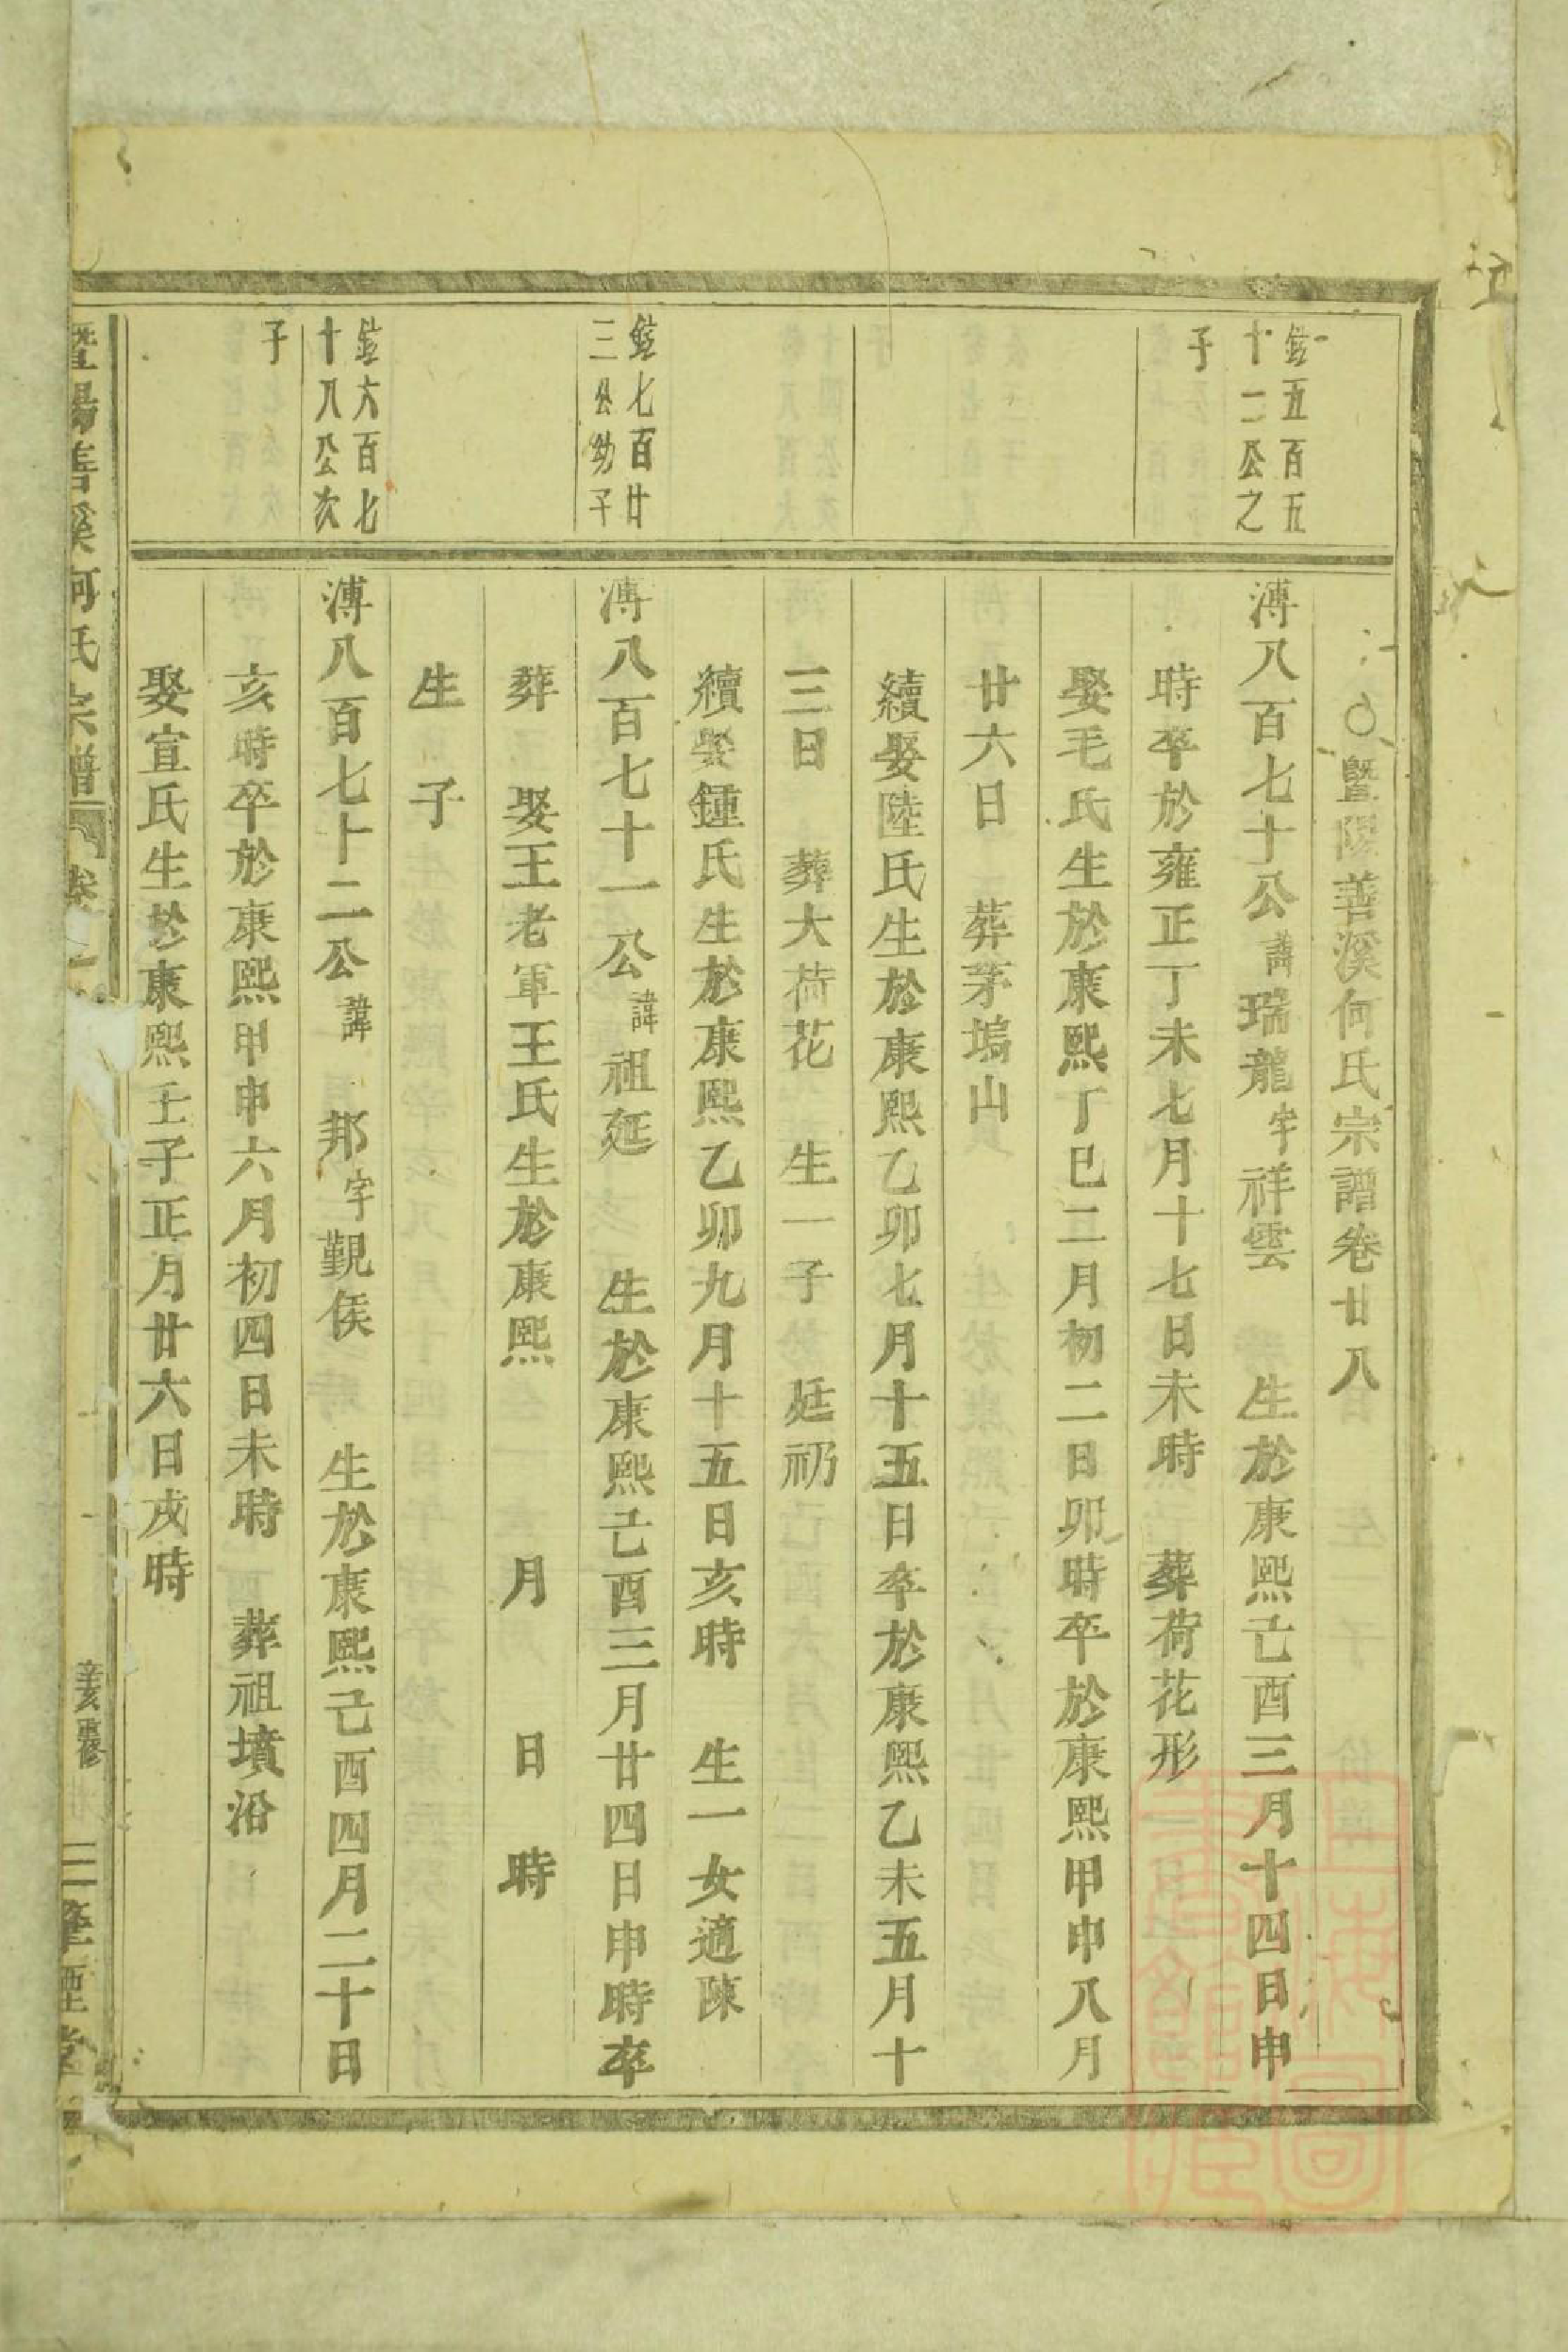 暨陽善溪何氏宗譜卷廿八
鋐五百五
十二公之
子
溥八百七十公諱瑞龍字祥雲 生於康熙己酉三月十四日申
時卒於雍正丁未七月十七日未時 葬荷花形
娶毛氏生於康熙丁巳二月初二日卯時卒於康熙甲申八月
廿六日 葬茅塢山
續娶陸氏生於康熙乙卯七月十五日卒於康熙乙未五月十
三日 葬大荷花 生一子 廷礽
續娶鍾氏生於康熙乙卯九月十五日亥時 生一女適陳
鋐七百廿
三公幼子
溥八百七十一公諱祖延 生於康熙己酉三月廿四日申時卒
葬 娶王老軍王氏生於康熙 月 日 時
生 子
鋐六百七
十八公次
子
溥八百七十二公諱 邦字覲侯 生於康熙己酉四月二十日
亥時卒於康熙甲申六月初四日未時 葬祖墳沿
娶宣氏生於康熙壬子正月廿六日戌時
暨陽善溪何氏宗譜 卷
辛亥重修